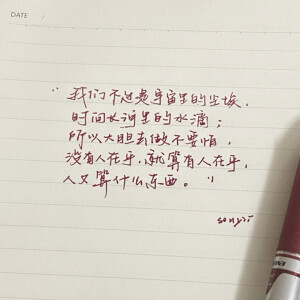 DATE
“我们不过是宇宙里的尘埃，
时间长河里的水滴；
所以大胆去做不要怕，
没有人在乎，就算有人在乎，
人又算什么东西。”